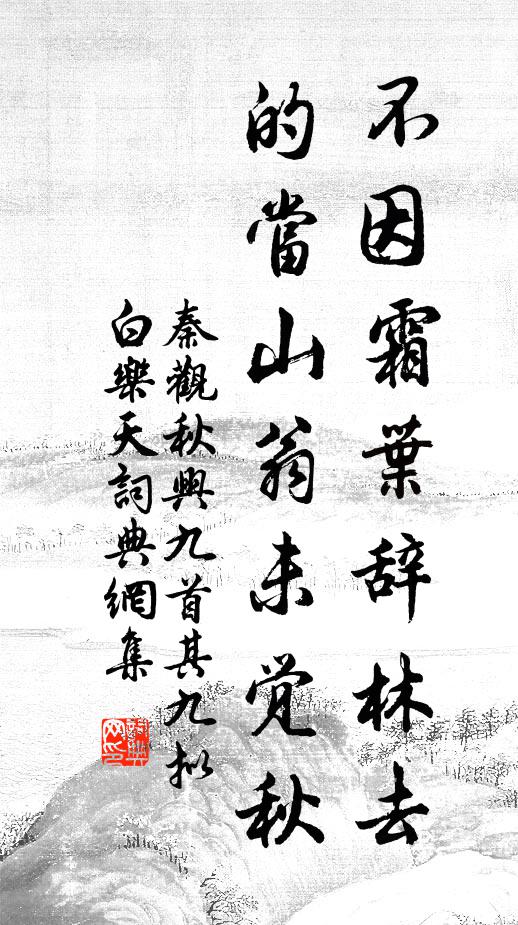 不因霜葉辞林去
的當山翁未覺秋
秦觀秋興九首其九拟
白樂天詞典網集